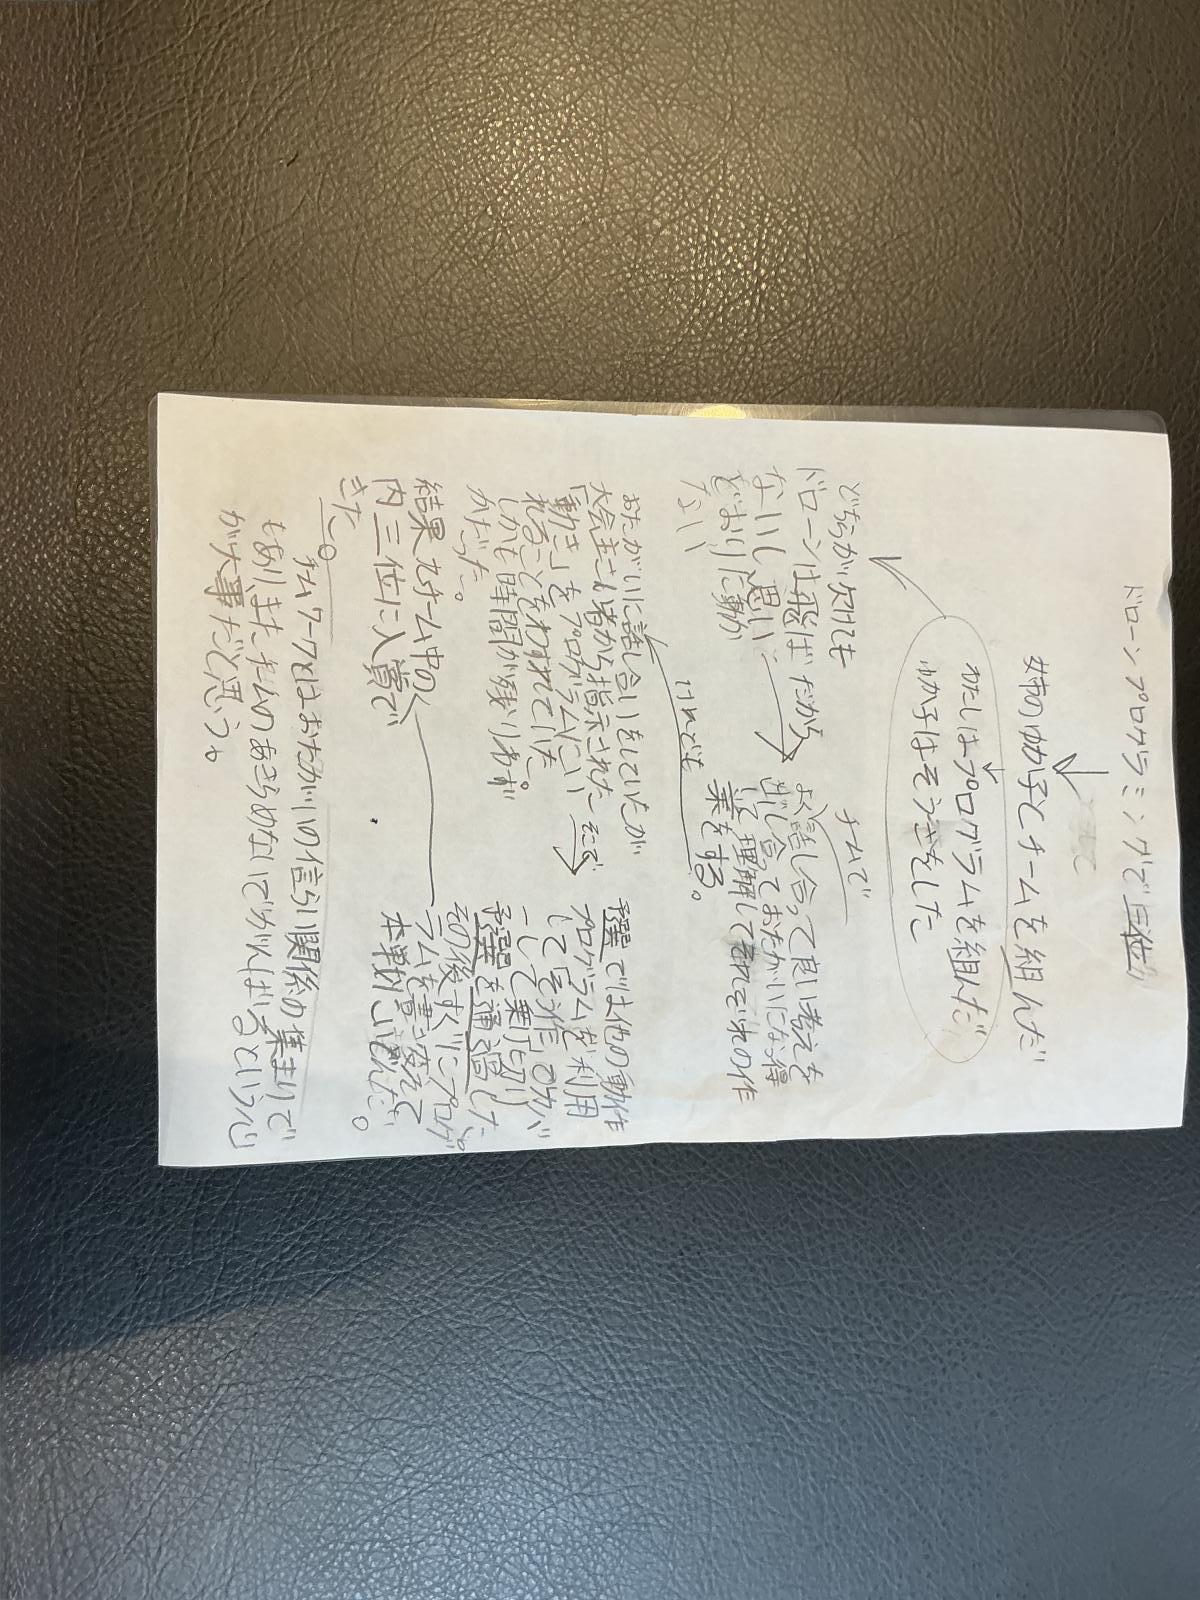 ドローンプログラミングで三位
姉のゆか子とチームを組んだ
わたしはプログラムを組んだ
ゆか子はそうさをした
どちらが欠けても
ドローンは飛ば
ないし思い
どおりに動か
ない
だから
チームで
よく話し合って良い考えを
出し合っておたがいになっ得
いて理解してそれぞれの作
業をする。
けれども
おたがいに話し合いをしていたが
大会主さい者から指示された
「動き」をプログラムにい
れることをわすれていた。
しかも時間が残りわず
かだった。
そこで
予選では他の動作
プログラムを利用
して手作
して乗り切り
予選を通過した。
その後すぐにプログ
ラムを書き変えて
本選にいどんだ。
結果九チーム中の
内三位に入賞で
きた。
チームワークとはおたがいの信らい関係の集まりで
もありまたそんのあきらめないでがんばろうという心
が大事だと思う。